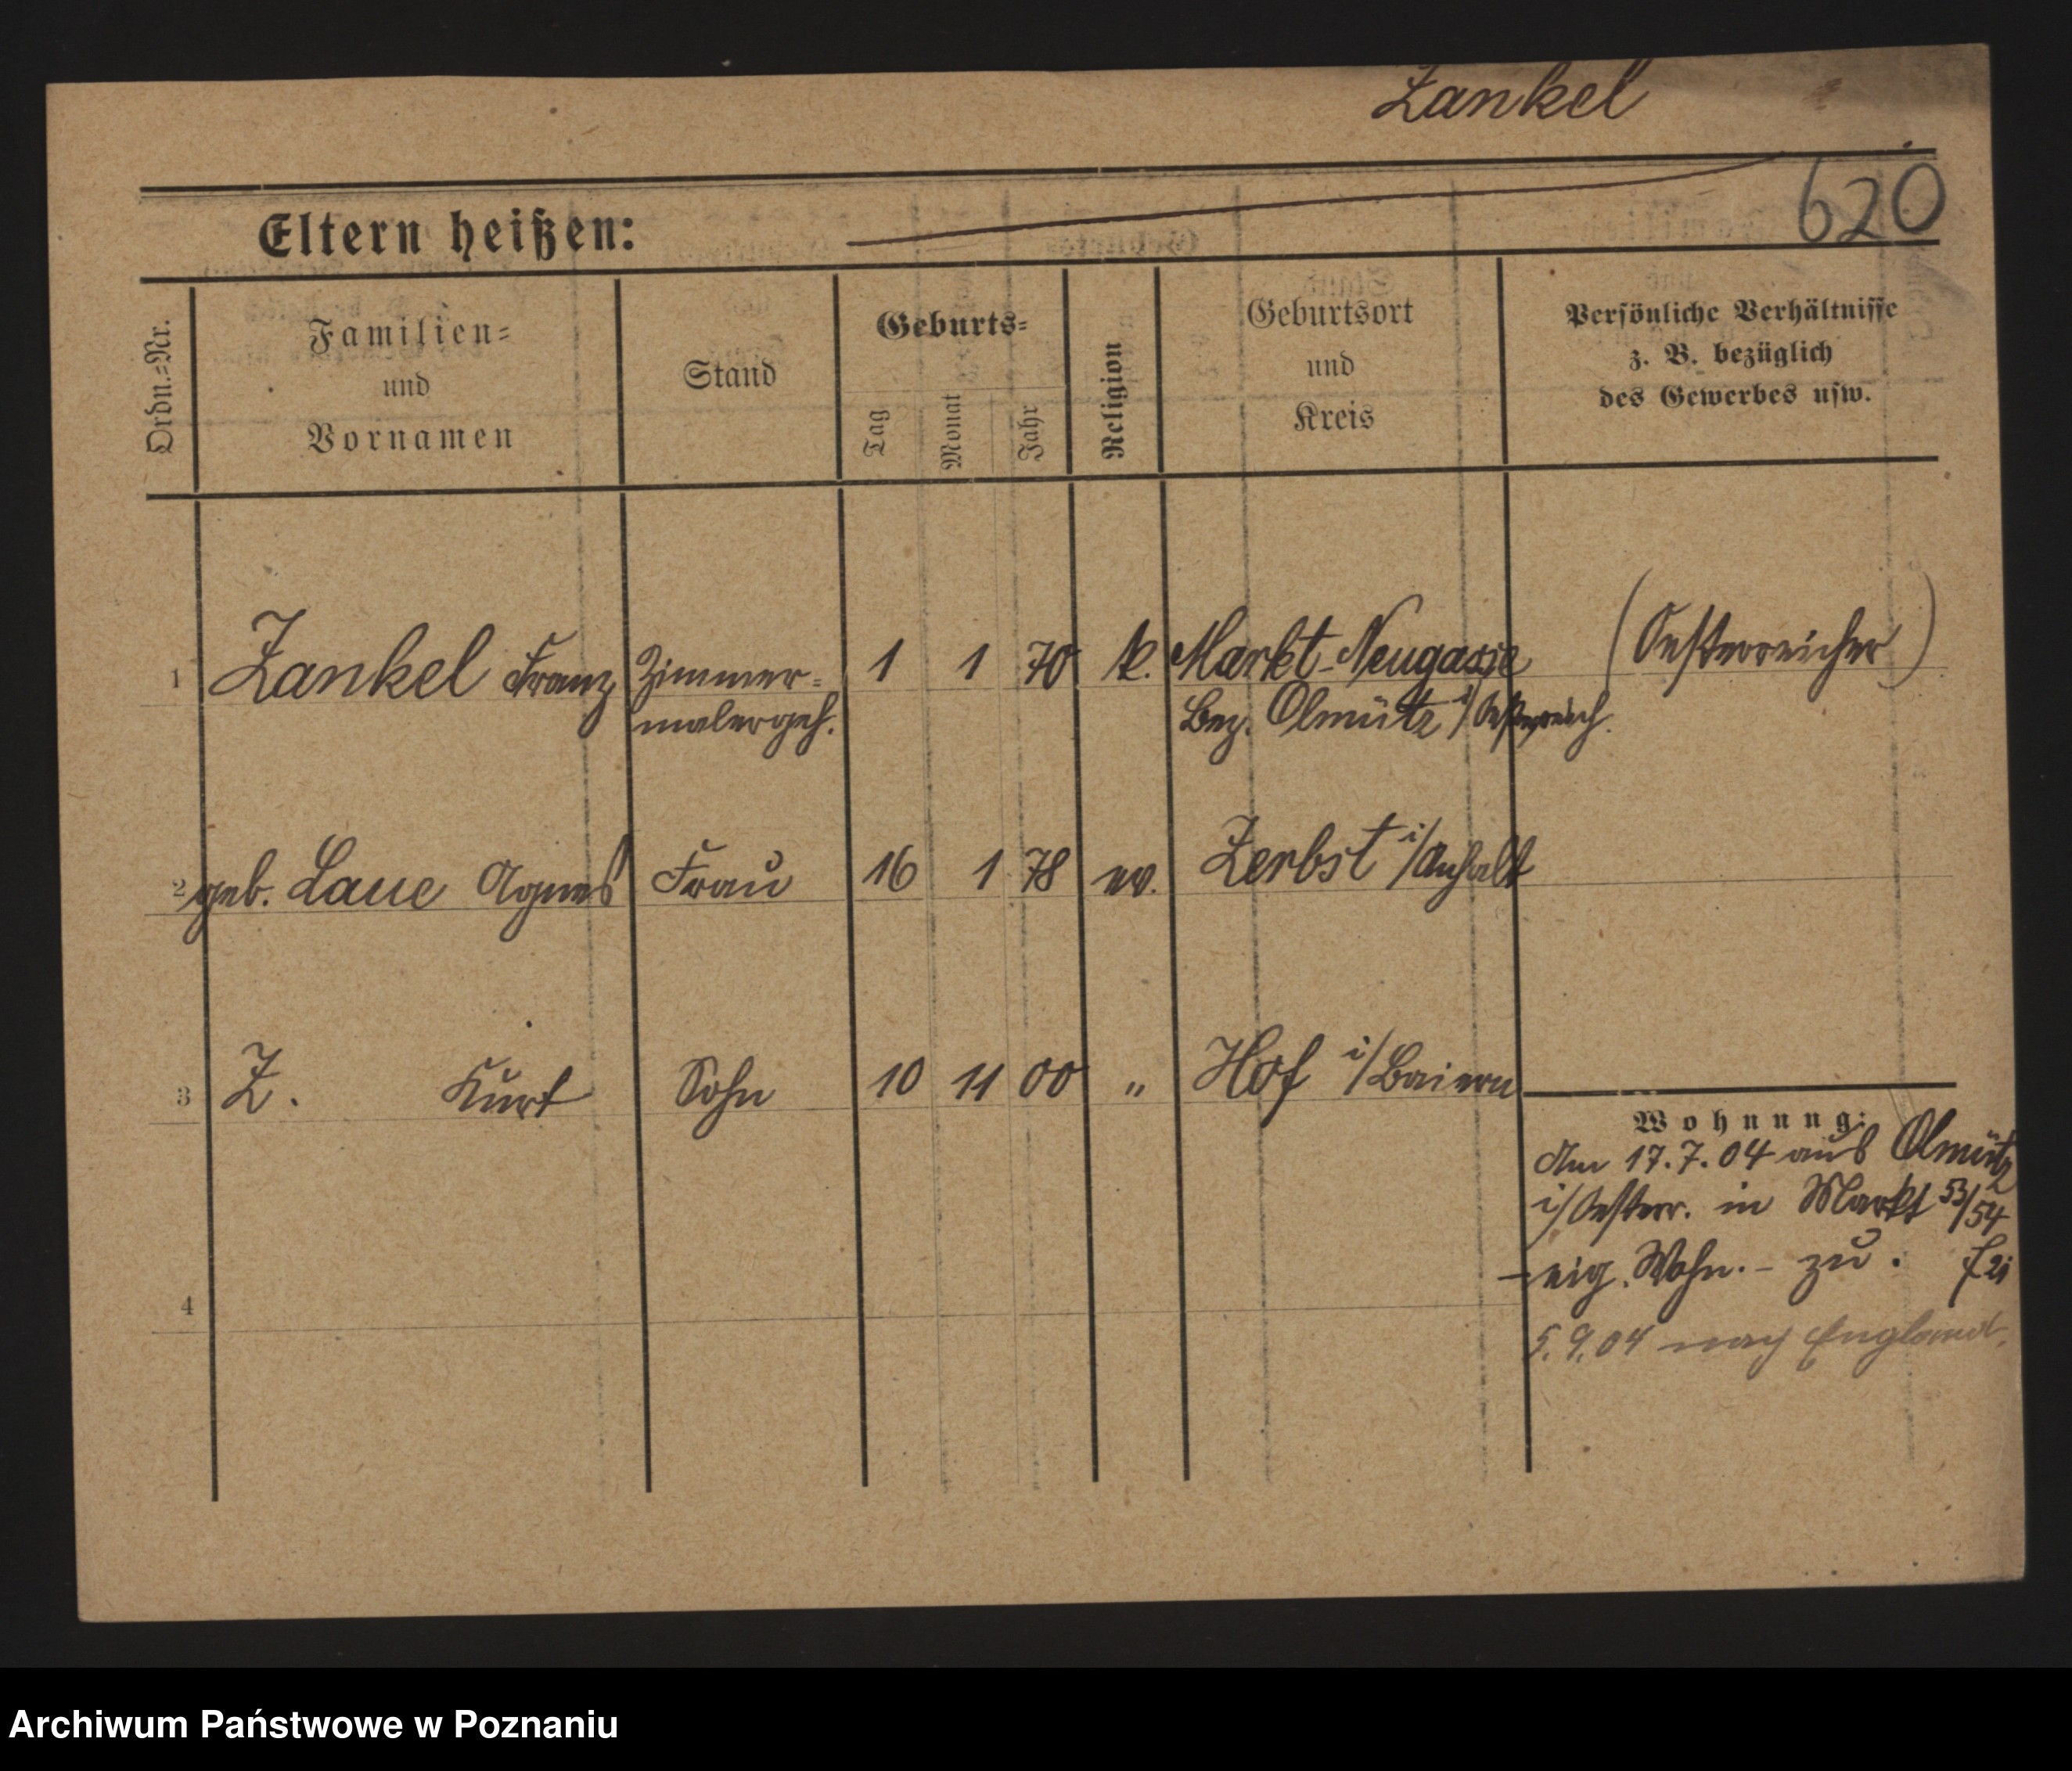 Zankel
620
Eltern heißen:
Ordn.=Nr.
Familien=
und
Vornamen
Stand
Geburts=
Tag
Monat
Jahr
Religion
Geburtsort
und
Kreis
Persönliche Verhältnisse
z. B. bezüglich
des Gewerbes usw.
1 Zankel Franz Zimmer= 1 1 70 k. Markt-Neugasse (Oesterreicher)
malergeh. Bez. Olmütz i/Oesterreich.
2 geb. Laue Agnes Frau 16 1 78 ev. Zerbst i/Anhalt
3 Z. Kurt Sohn 10 11 00 " Hof i/Baiern
Wohnung:
Am 17.7.04 aus Olmütz
i/Oesterr. in Markt 53/54
- eig. Wohn. - zu.
4
5.9.04 nach England.
Archiwum Państwowe w Poznaniu